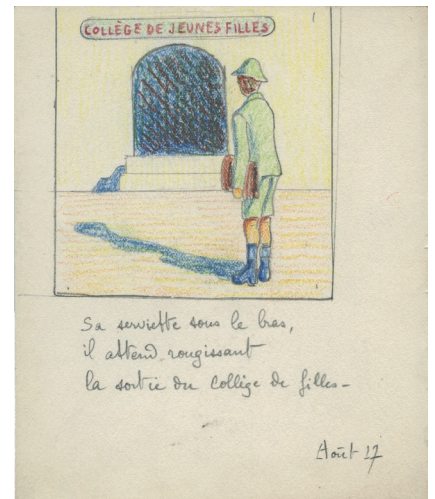 COLLÈGE DE JEUNES FILLES
Sa serviette sous le bras,
il attend rougissant
la sortie du collège de filles -
Août 27